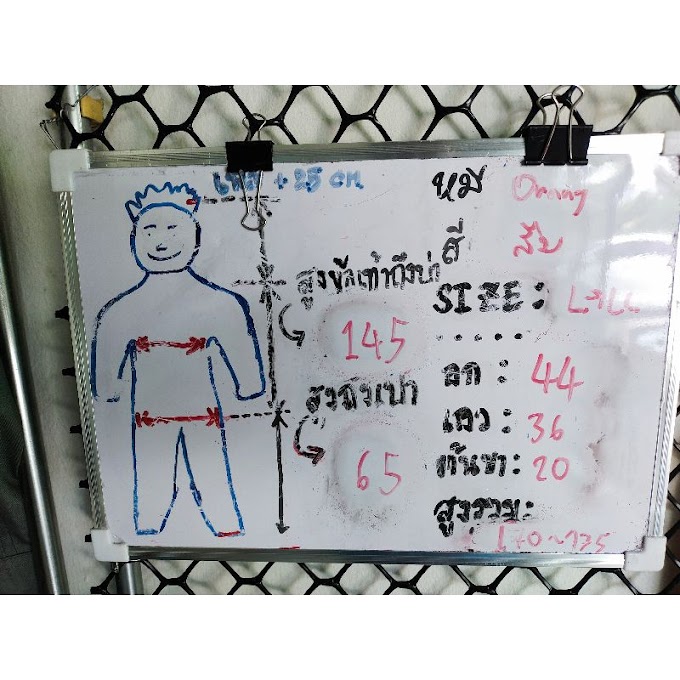 + 25 cm
หมี
สี ส้ม
SIZE: L
สูงข้อเท้าถึงบ่า
145
.....
อก: 44
สูงถึงเป้า
65
เอว: 36
ต้นขา: 20
สูงรวม: